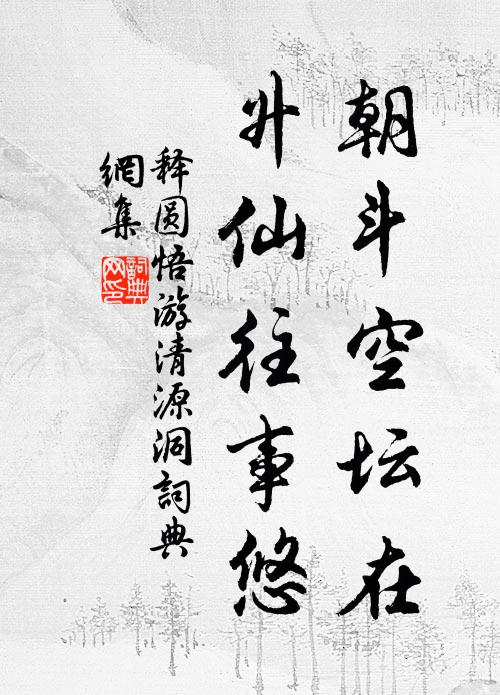 朝斗空坛在
升仙往事悠
释圆悟游清源洞詞典
網集
詞典
网印